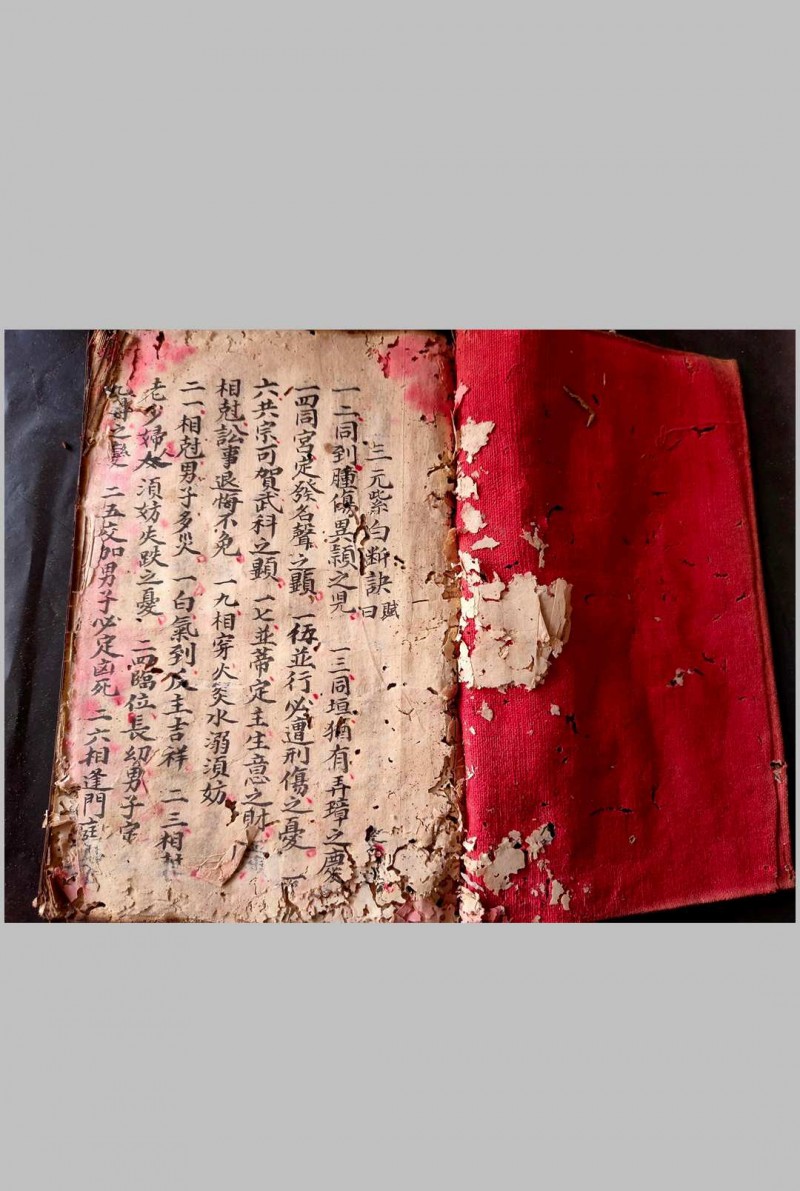 三元紫白断訣 賦曰
一二同到腫傷異穎之児 一三同垣猶有弄璋之慶
一四同宮定發名聲之顯 一伍並行必遭刑傷之憂 一
六共宗可賀武科之顯 一七並蒂定主生意之財
相尅訟事退悔不免 一九相穿火災水溺須妨
二一相尅男子多災 一白氣到反主吉祥 二三相
老少婦人須妨失跌之憂 二四臨位長幼男子
之變 二五交加男子必定凶死 二六相逢門庭